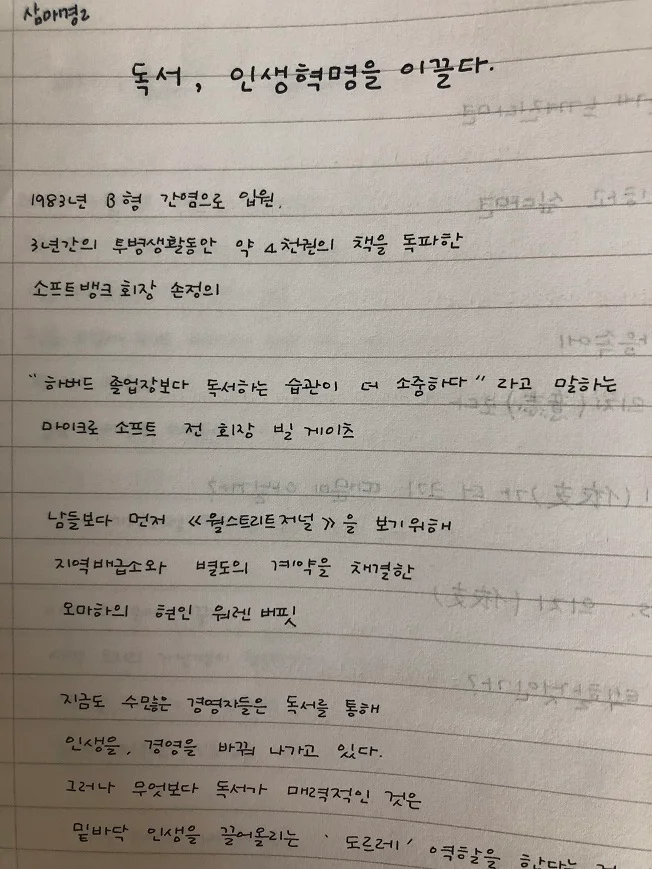 삼매경2
독서, 인생혁명을 이끌다.
1983년 B형 간염으로 입원.
3년간의 투병생활동안 약 4천권의 책을 독파한
소프트뱅크 회장 손정의
"하버드 졸업장보다 독서하는 습관이 더 소중하다" 라고 말하는
마이크로 소프트 전 회장 빌 게이츠
남들보다 먼저 《월스트리트저널》을 보기위해
지역배급소와 별도의 계약을 채결한
오마하의 현인 워렌 버핏
지금도 수많은 경영자들은 독서를 통해
인생을, 경영을 바꿔 나가고 있다.
그러나 무엇보다 독서가 매력적인 것은
밑바닥 인생을 끌어올리는 '도르레' 역할을 한다는